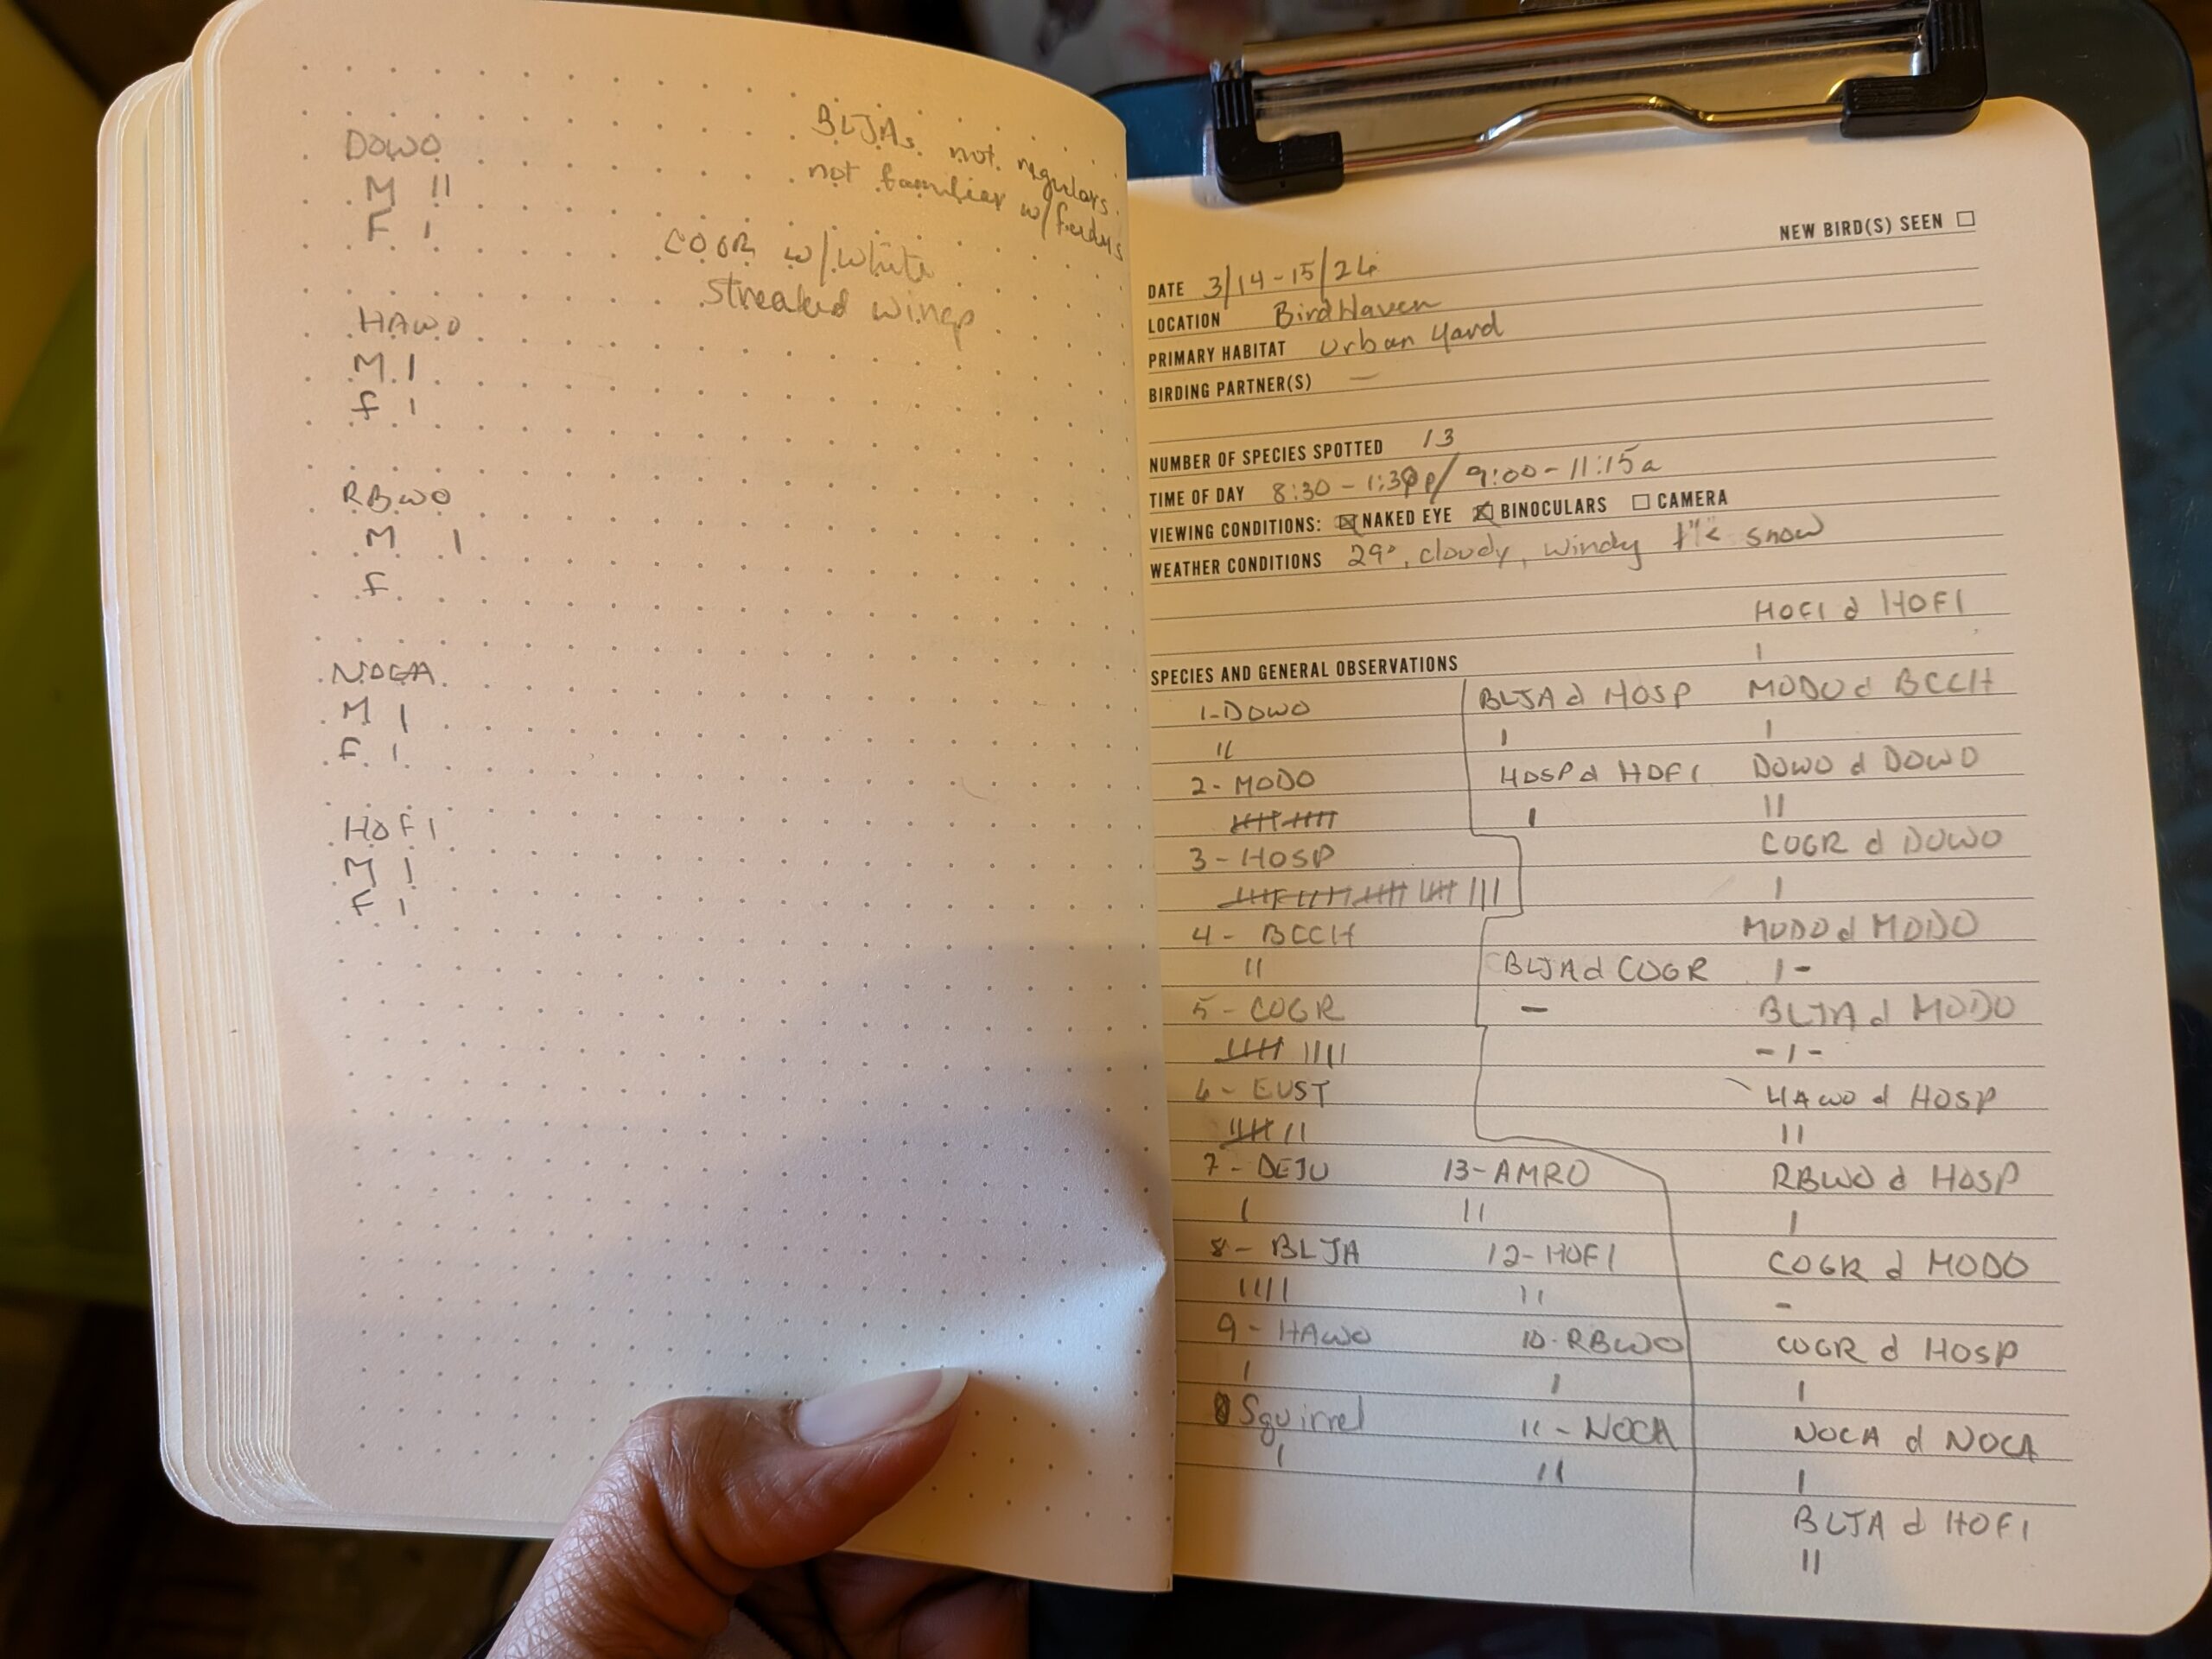 DOWO
M II
F I
HAWO
M I
F I
RBWO
M I
F
NOCA
M I
F I
HOFI
M I
F I
BLJAs not regulars.
not familiar w/
COGR w/white
streaked wings
NEW BIRD(S) SEEN ☐
DATE 3/14-15/26
LOCATION BirdHaven
PRIMARY HABITAT Urban Yard
BIRDING PARTNER(S) —
NUMBER OF SPECIES SPOTTED 13
TIME OF DAY 8:30 - 1:30p/ 9:00 - 11:15a
VIEWING CONDITIONS: ☒ NAKED EYE ☒ BINOCULARS ☐ CAMERA
WEATHER CONDITIONS 29°, cloudy, windy 1"< snow
SPECIES AND GENERAL OBSERVATIONS
1-DOWO
II
2- MODO
IIII IIII
3- HOSP
IIII IIII IIII IIII III
4- BCCH
II
5- COGR
IIII IIII
6- EUST
IIII II
7- DEJU
I
8- BLJA
IIII
9- HAWO
I
Squirrel
I
13-AMRO
II
12-HOFI
II
10-RBWO
I
11-NOCA
II
BLJA d HOSP
I
HOSP d HOFI
I
BLJA d COGR
-
HOFI d HOFI
I
MODO d BCCH
I
DOWO d DOWO
II
COGR d DOWO
I
MODO d MODO
I -
BLJA d MODO
- I -
HAWO d HOSP
II
RBWO d HOSP
I
COGR d MODO
-
COGR d HOSP
I
NOCA d NOCA
I
BLJA d HOFI
II